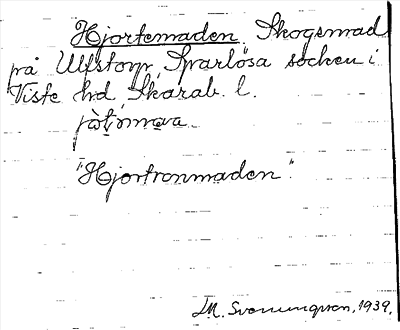 Hjortemaden. Skogsmad
på Ulfstorp, Sparlösa socken i
Viste hd, Skarab. l.
"Hjortronmaden".
M. Svanungsson, 1939.